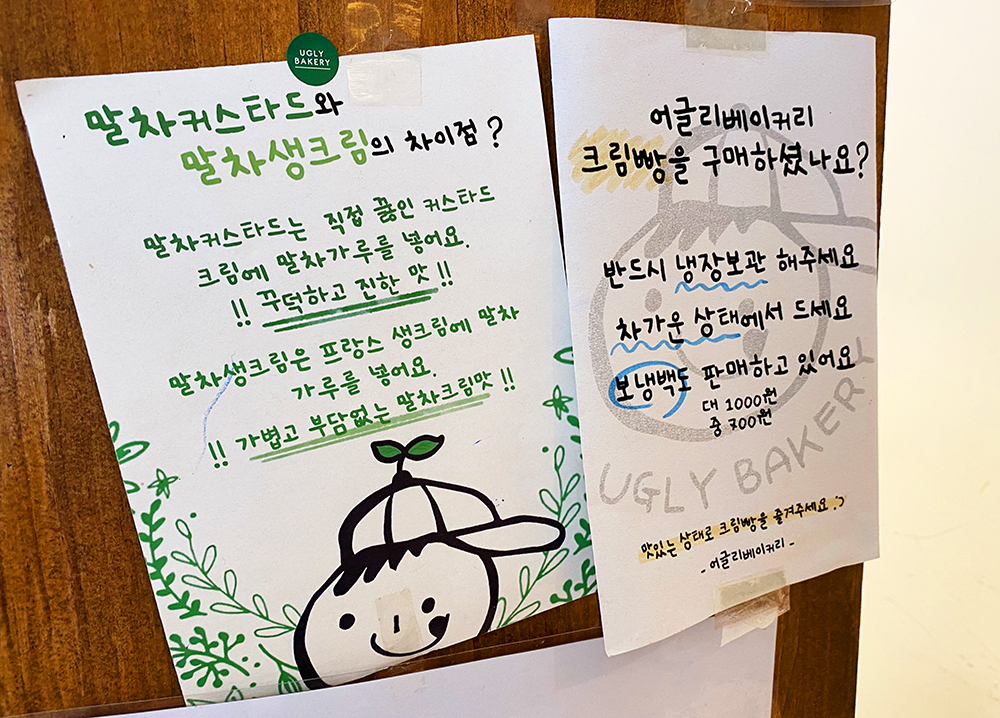 UGLY
BAKERY
말차커스타드와
말차생크림의 차이점?
말차커스타드는 직접 끓인 커스타드
크림에 말차가루를 넣어요.
!! 꾸덕하고 진한 맛 !!
말차생크림은 프랑스 생크림에 말차
가루를 넣어요.
!! 가볍고 부담없는 말차크림맛 !!
어글리베이커리
크림빵을 구매하셨나요?
반드시 냉장보관 해주세요
차가운 상태에서 드세요
보냉백도 판매하고 있어요
대 1000원
중 700원
UGLY BAKERY
맛있는 상태로 크림빵을 즐겨주세요 :)
- 어글리베이커리 -